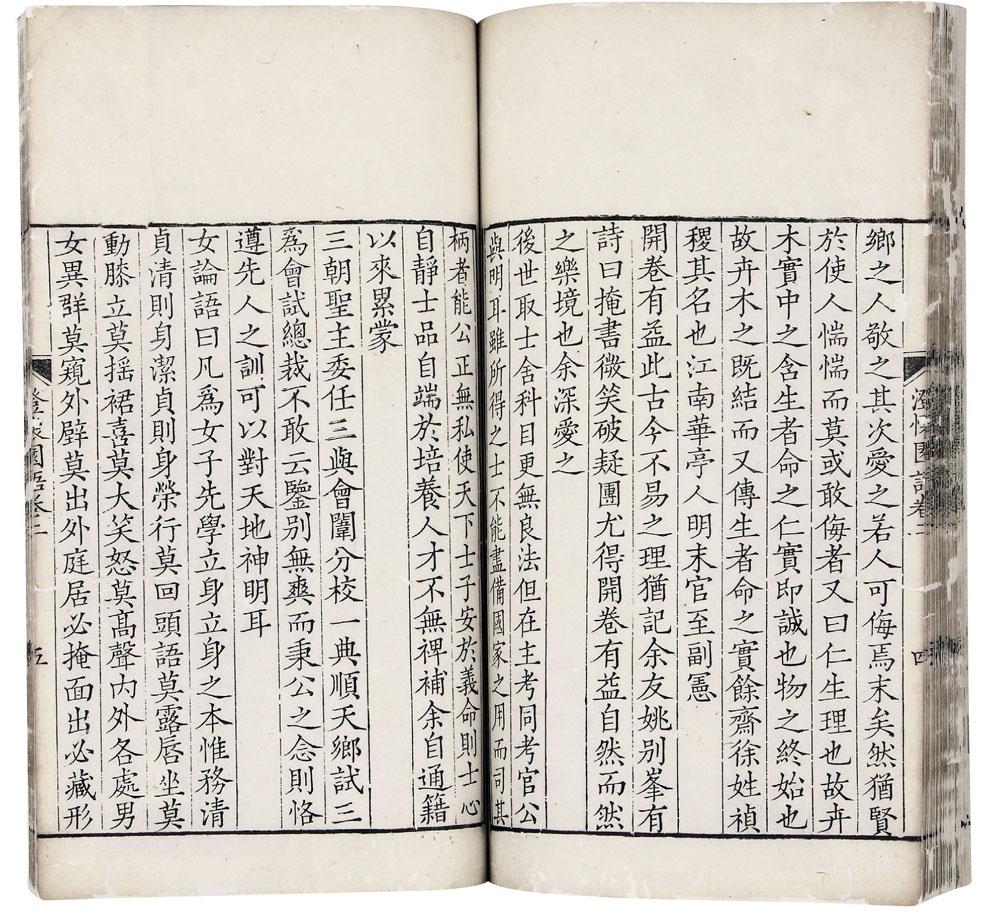 鄉之人敬之其次愛之若人可侮焉末矣然猶賢
於使人惴惴而莫或敢侮者又曰仁生理也故卉
木實中之含生者命之仁實即誠也物之終始也
故卉木之既結而又傳生者命之實餘齋徐姓禎
稷其名也江南華亭人明末官至副憲
開卷有益此古今不易之理猶記余友姚别峯有
詩曰掩書微笑破疑團尤得開卷有益自然而然
之樂境也余深愛之
後世取士舍科目更無良法但在主考同考官公
與明耳雖所得之士不能盡備國家之用而司其
柄者能公正無私使天下士子安於義命則士心
自靜士品自端於培養人才不無裨補余自通籍
以來累蒙
三朝聖主委任三與會闈分校一典順天鄉試三
為會試總裁不敢云鑒别無爽而秉公之念則恪
遵先人之訓可以對天地神明耳
女論語曰凡為女子先學立身立身之本惟務清
貞清則身潔貞則身榮行莫回頭語莫露唇坐莫
動膝立莫摇裙喜莫大笑怒莫高聲内外各處男
女異群莫窺外壁莫出外庭居必掩面出必藏形
澄懷園語卷二
四
澄懷園語卷二
五